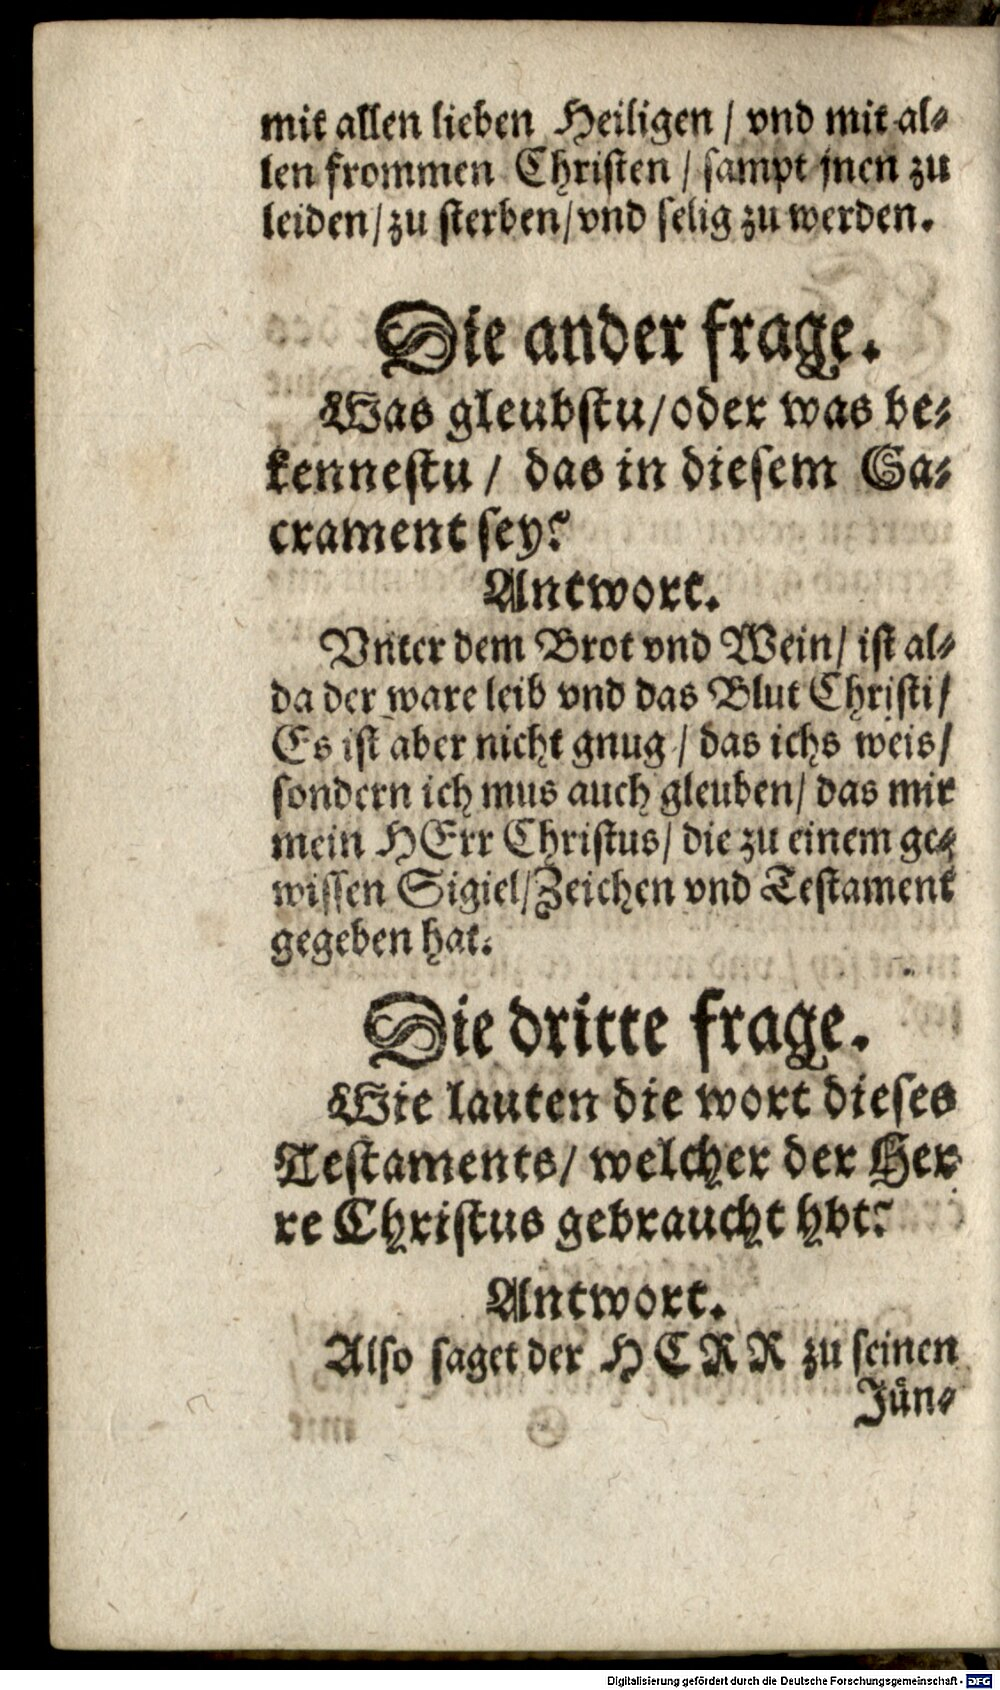 mit allen lieben Heiligen / vnd mit al⸗
len frommen Christen / sampt jnen zu
leiden / zu sterben / vnd selig zu werden.
Die ander frage.
Was gleubstu / oder was be⸗
kennestu / das in diesem Sa⸗
crament sey?
Antwort.
Vnter dem Brot vnd Wein / ist al⸗
da der ware leib vnd das Blut Christi /
Es ist aber nicht gnug / das ichs weis /
sondern ich mus auch gleuben / das mir
mein HErr Christus / die zu einem ge⸗
wissen Sigiel / Zeichen vnd Testament
gegeben hat.
Die dritte frage.
Wie lauten die wort dieses
Testaments / welcher der Her
re Christus gebraucht hbt?
Antwort.
Also saget der HERR zu seinen
Jün⸗
Digitalisierung gefördert durch die Deutsche Forschungsgemeinschaft - DFG